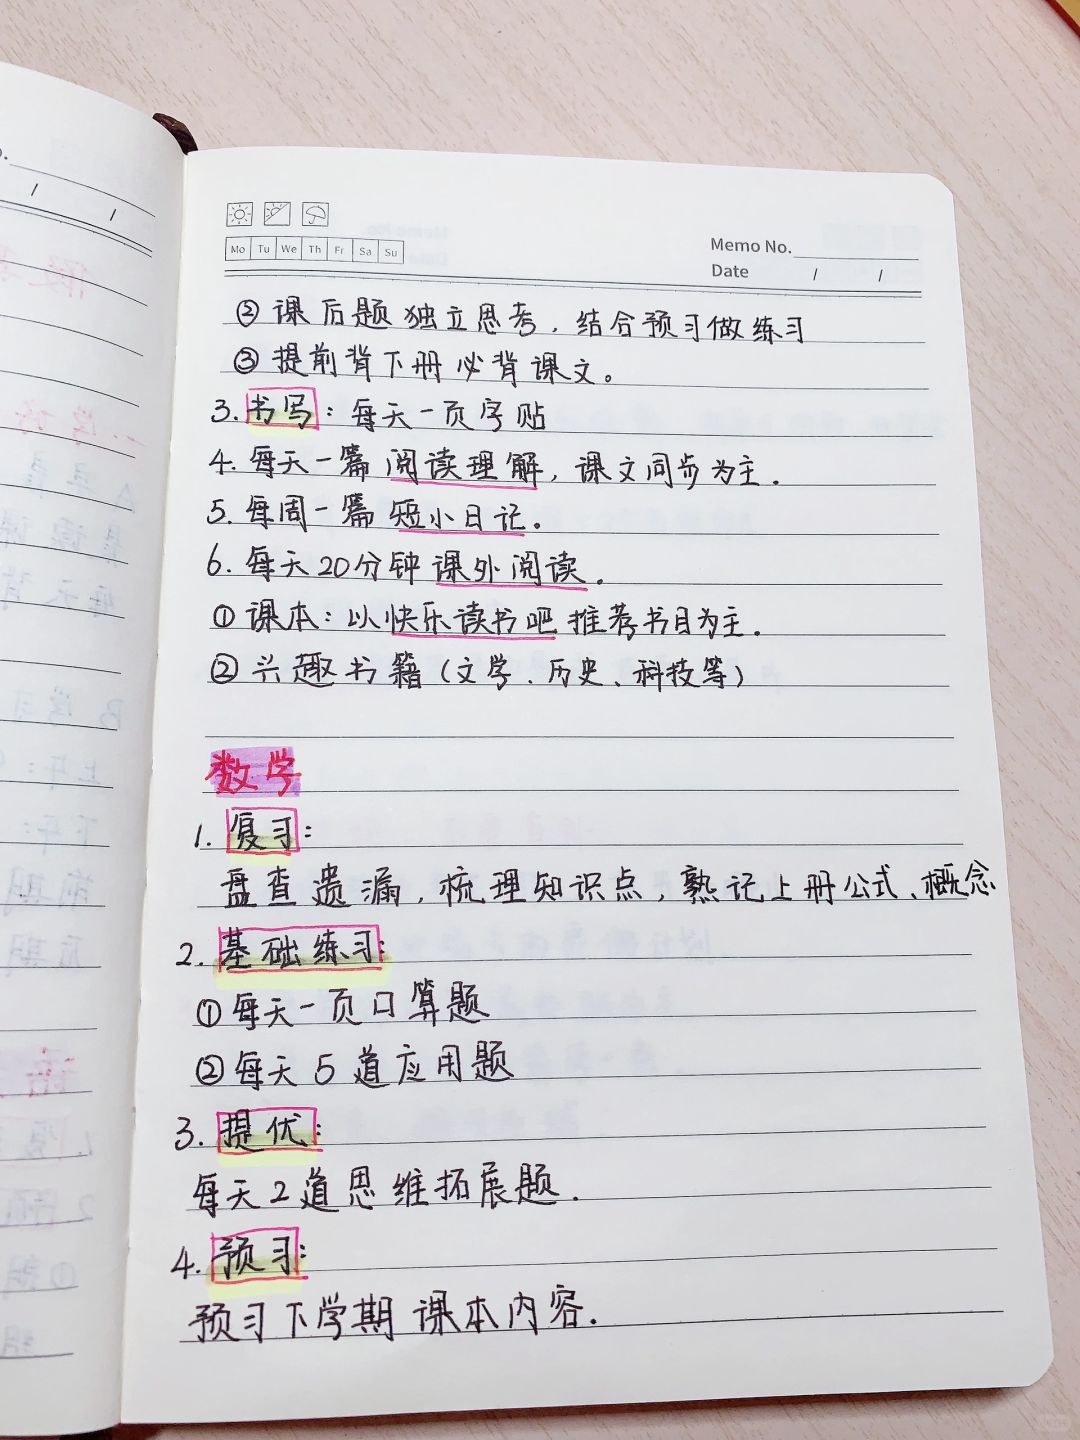 Mo Tu We Th Fr Sa Su
Memo No.
Date / /
② 课后题独立思考，结合预习做练习
③ 提前背下册必背课文。
3. 书写：每天一页字贴
4. 每天一篇阅读理解，课文同步为主.
5. 每周一篇短小日记。
6. 每天20分钟课外阅读.
① 课本：以快乐读书吧推荐书目为主.
② 兴趣书籍（文学、历史、科技等）
数学
1. 复习：
盘查遗漏，梳理知识点，熟记上册公式、概念
2. 基础练习：
① 每天一页口算题
② 每天5道应用题
3. 提优：
每天2道思维拓展题.
4. 预习：
预习下学期课本内容.